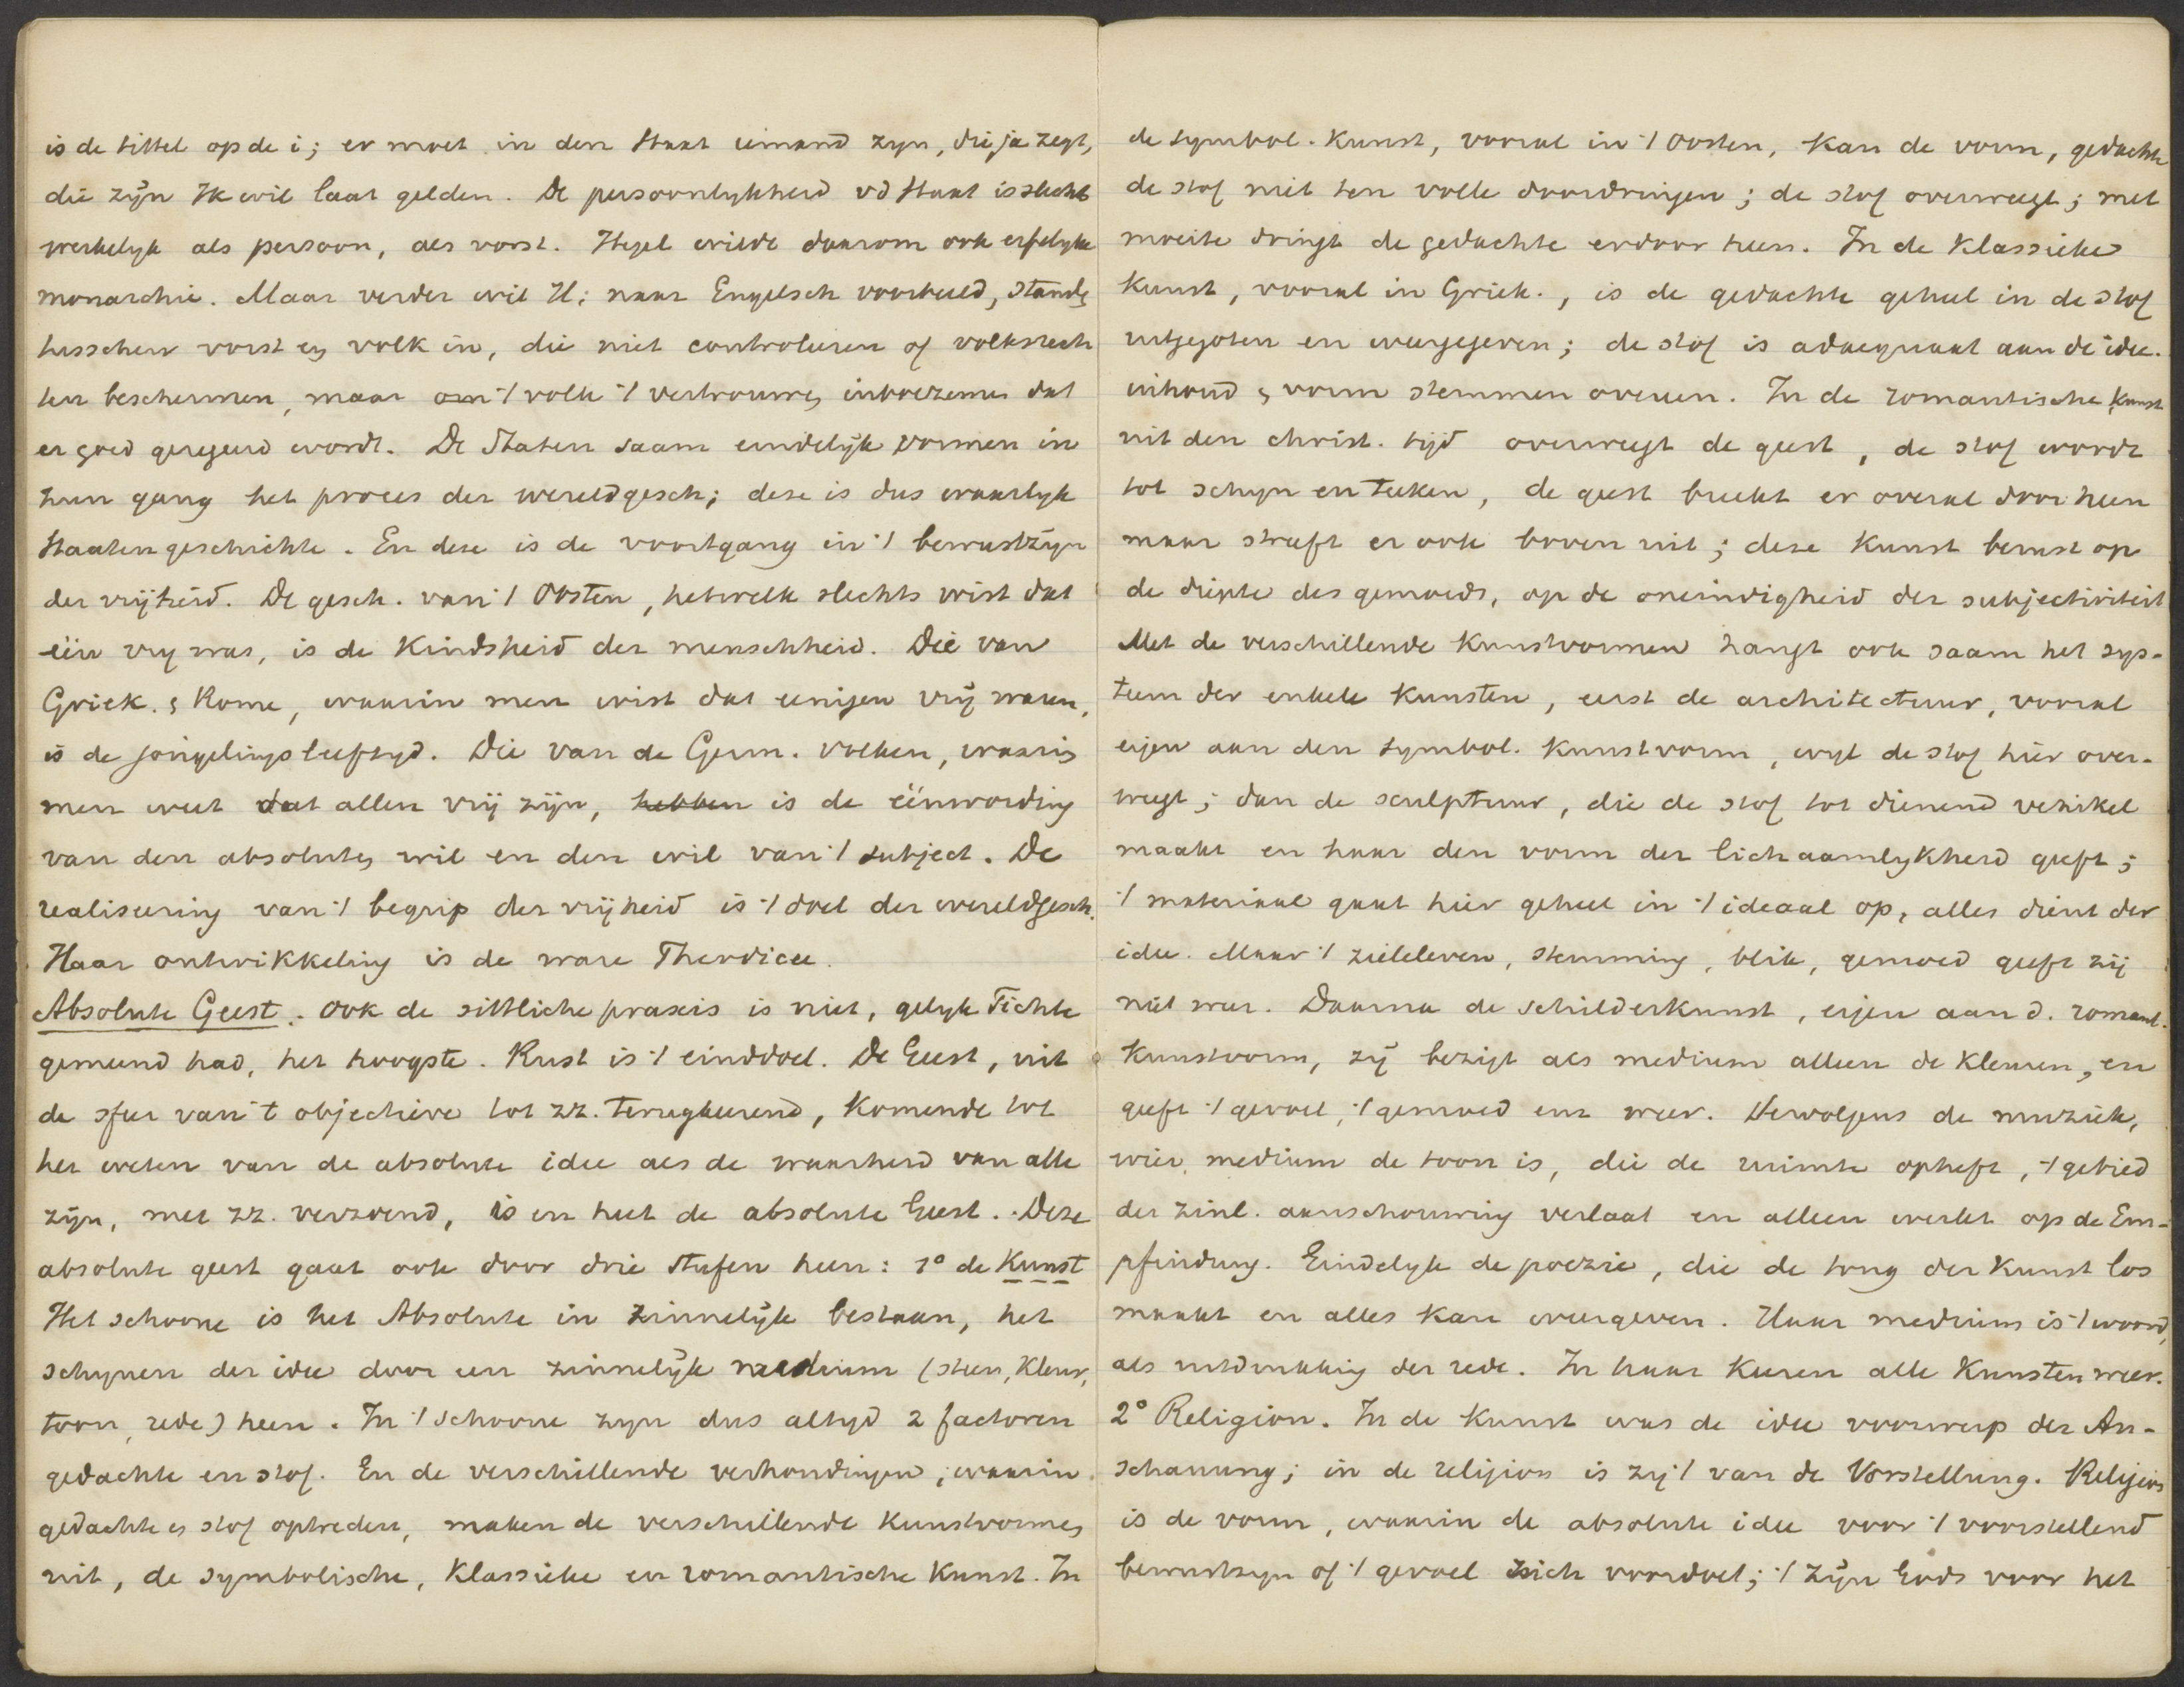 is de tittel op de i; er moet in den Staat iemand zyn, die ja zegt,
die zijn Ik wil laat gelden. De persoonlykheid vd Staat is slechts
werkelyk als persoon, als vorst. Hegel wilde daarom ook erfelyke
monarchie. Maar verder wil H; naar Engelsch voorbeeld, standen
tusschen vorst en volk in, die niet controleeren of volksrech
ten beschermen, maar om 't volk 't vertrouwen inboezemen dat
er goed geregeerd wordt. De Staten saam eindelijk vormen in
hun gang het proces der wereldgesch; deze is dus waarlyk
Staatengeschichte. En deze is de voortgang in 't bewustzijn
der vrijheid. De gesch. van 't Oosten, hetwelk slechts wist dat
één vry was, is de Kindsheid der menschheid. Die van
Griek. & Rome, waarin men wist dat eenigen vrij waren,
is de jongelingsleeftyd. Die van de Germ. volken, waarin
men weet dat allen vrij zijn, hebben is de éénwording
van den absoluten wil en den wil van 't subject. De
realiseering van 't begrip der vrijheid is 't doel der wereldgesch.
Haar ontwikkeling is de ware Theodicee.
Absolute Geest. Ook de sittliche praxis is niet, gelyk Fichte
gemeend had, het hoogste. Rust is 't einddoel. De Geest, uit
de sfeer van 't objectieve tot zz. terugkeerend, Komende tot
het weten van de absolute idee als de waarheid van alle
zijn, met zz. verzoend, is en heet de absolute Geest. Deze
absolute geest gaat ook door drie Stufen heen: 1º de Kunst
Het schoone is het Absolute in zinnelijk bestaan, het
schynen der idee door een zinnelijk medium (steen, Kleur,
toon, rede) heen. In 't schoone zyn dus altyd 2 factoren
gedachte en stof. En de verschillende verhoudingen, waarin
gedachte en stof optreden, maken de verschillende Kunstvormen
uit, de symbolische, Klassieke en romantische Kunst. In
de symbol. Kunst, vooral in 't Oosten, Kan de vorm, gedachte
de stof niet ten volle doordringen; de stof overweegt; met
moeite dringt de gedachte erdoor heen. In de Klassieke
Kunst, vooral in Griek., is de gedachte geheel in de stof
uitgegoten en weergegeven; de stof is adaequaat aan de idee.
inhoud & vorm stemmen overeen. In de romantische Kunst
uit den christ. tijd overweegt de geest, de stof wordt
tot schyn en teeken, de geest breekt er overal door heen
maar streeft er ook boven uit; deze Kunst berust op
de diepte des gemoeds, op de oneindigheid der subjectiviteit
Met de verschillende Kunstvormen hangt ook saam het sys-
teem der enkele Kunsten, eerst de architectuur, vooral
eigen aan den symbol. Kunstvorm, wyl de stof hier over-
weegt; dan de sculptuur, die de stof tot dienend vehikel
maakt en haar den vorm der lichaamlykheid geeft;
't materiaal gaat hier geheel in 't ideaal op, alles dient der
idee. Maar 't zieleleven, stemming, blik, gemoed geeft zij
niet weer. Daarna de schilderkunst, eigen aan d. romant.
Kunstvorm, zij bezigt als medium alleen de Kleuren, en
geeft 't gevoel, 't gemoed enz weer. Vervolgens de muziek,
wier medium de toon is, die de ruimte opheft, 't gebied
der zinl. aanschouwing verlaat en alleen werkt op de Em-
pfindung. Eindelyk de poezie, die de tong der Kunst los
maakt en alles Kan weergeven. Haar medium is 't woord,
als uitdrukking der rede. In haar Keeren alle Kunsten weer.
2º Religion. In de Kunst was de idee voorwerp der An-
schauung; in de religion is zij 't van de Vorstellung. Religion
is de vorm, waarin de absolute idee voor 't voorstellend
bewustzyn of 't gevoel zich voordoet; 't zijn Gods voor het